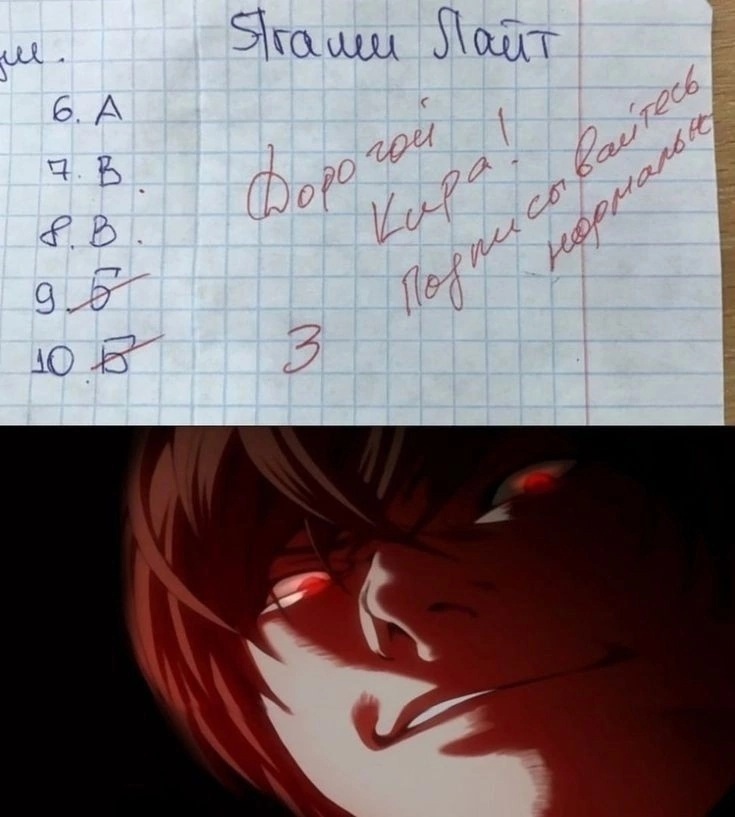 Ягами Лайт
6. А
7. В.
8. В.
9. Б
10. Б
Дорогой
Кира!
Подписывайтесь
нормально
3